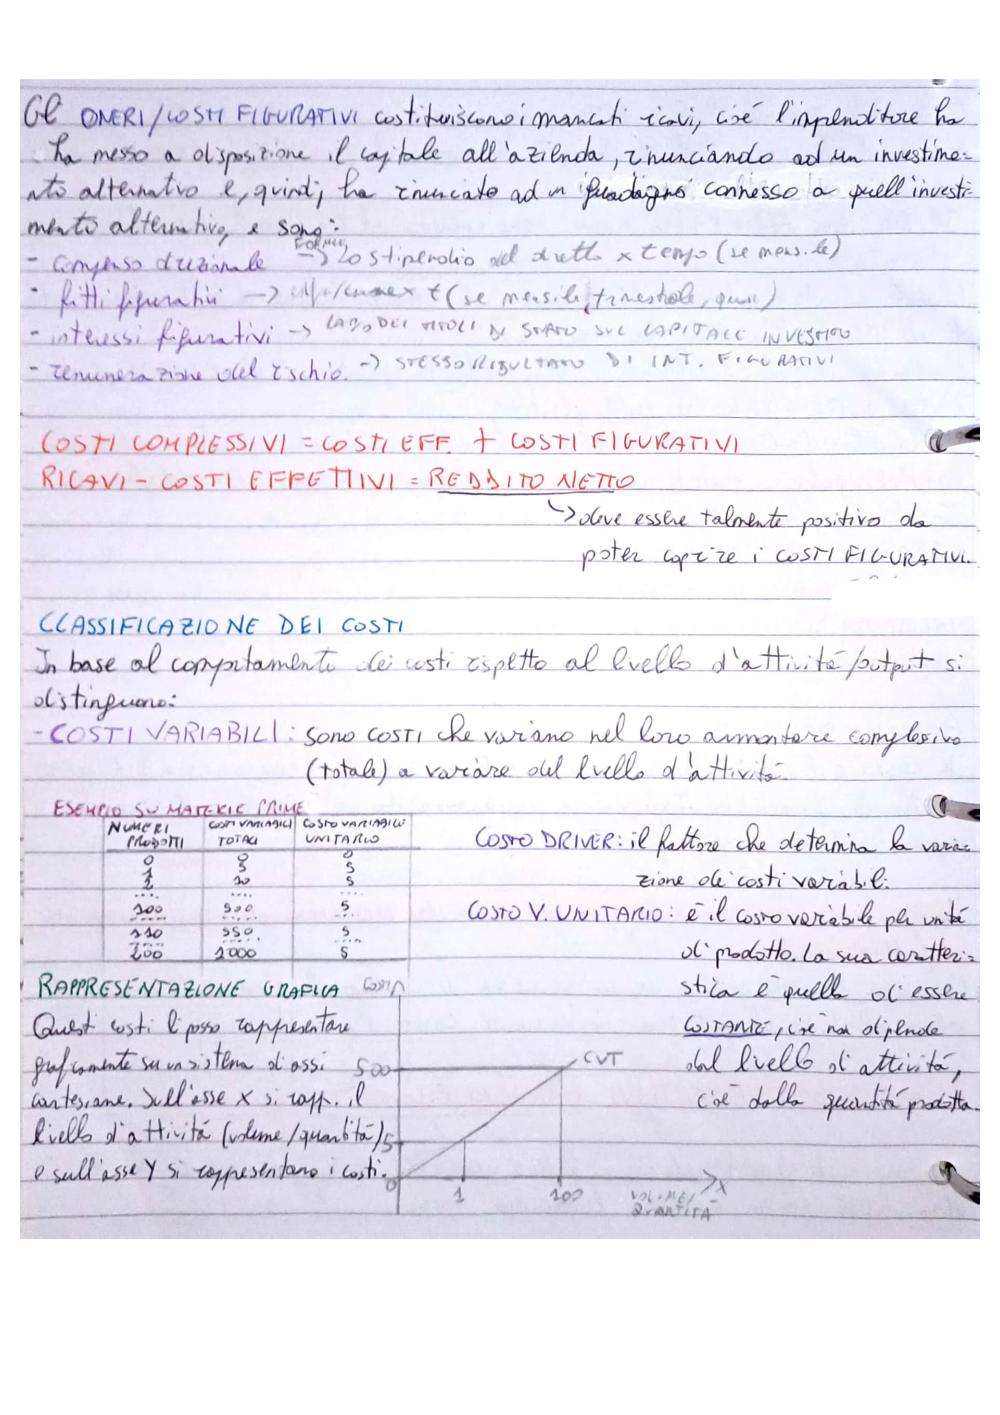 Gli ONERI/COSTI FIGURATIVI costituiscono i mancati ricavi, cioé l'imprenditore ha
ha messo a disposizione il capitale all'azienda, rinunciando ad un investime=
nto alternativo e, quindi, ha rinunciato ad un guadagno connesso a quell'investi=
mento alternativo, e sono:
FORMULE
- compenso direzionale -> Lo stipendio del diretto x tempo (se mensile)
- fitti figurativi -> x t (se mensile, trimestrale,
- interessi figurativi -> DEI TITOLI DI STATO SUL CAPITALE INVESTITO
- remunerazione del rischio. -> STESSO RISULTATO DI INT. FIGURATIVI
COSTI COMPLESSIVI = COSTI EFF. + COSTI FIGURATIVI
RICAVI - COSTI EFFETTIVI = REDDITO NETTO
-> deve essere talmente positivo da
poter coprire i COSTI FIGURATIVI.
CLASSIFICAZIONE DEI COSTI
In base al comportamento dei costi rispetto al livello d'attività/output si
distinguono:
- COSTI VARIABILI: sono COSTI che variano nel loro ammontare complessivo
(totale) a variare del livello d'attività.
ESEMPIO SU MATERIE PRIME
NUMERI PRODOTTI COSTI VARIABILI TOTALI COSTO VARIABILE UNITARIO
0 0 0
1 5 5
2 10 5
.... .... ....
100 500 5
.... .... ....
110 550 5
.... .... ....
200 1000 5
COSTO DRIVER: il fattore che determina la varia=
zione dei costi variabili.
COSTO V. UNITARIO: é il costo variabile per unità
di prodotto. La sua caratteri=
stica é quella di essere
COSTANTE, cioé non dipende
dal livello di attività,
cioé dalla quantità prodotta.
RAPPRESENTAZIONE GRAFICA
Questi costi li posso rappresentare
graficamente su un sistema di assi
cartesiane. Sull'asse X si rapp. il
livello d'attività (volume/quantità)
e sull'asse Y si rappresentano i costi.
COSTI
500
CVT
5
0
1
100
X
VOLUME/
QUANTITÀ